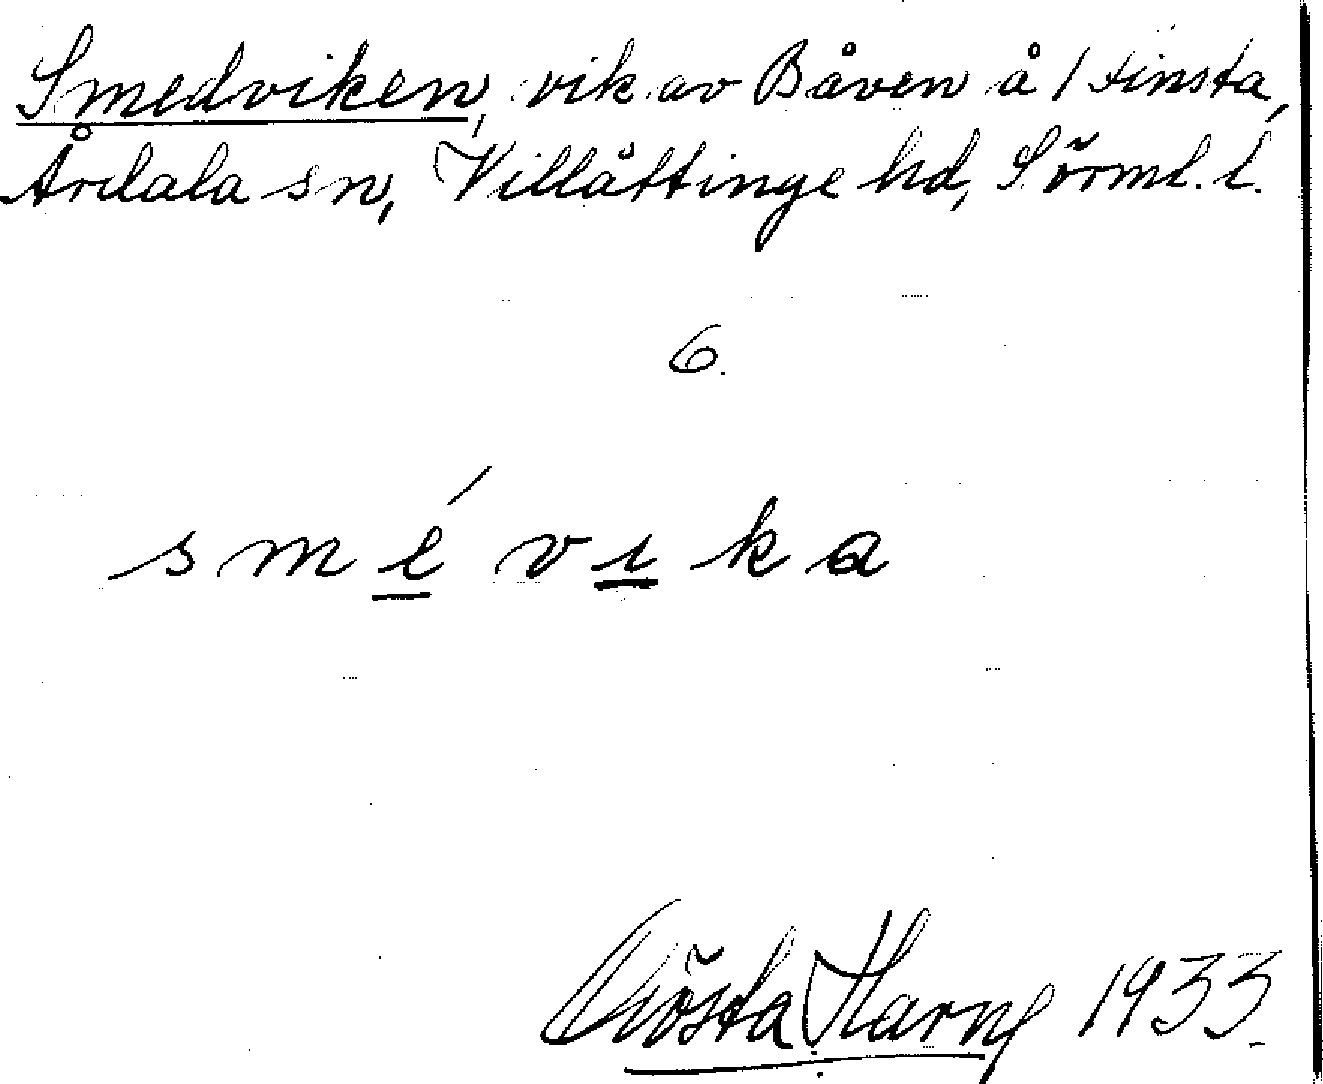 Smedviken, vik av Båven å Finsta,
Årdala sn, Villåttinge hd, Sörml. l.
6.
smévika
Gösta Harny 1933.